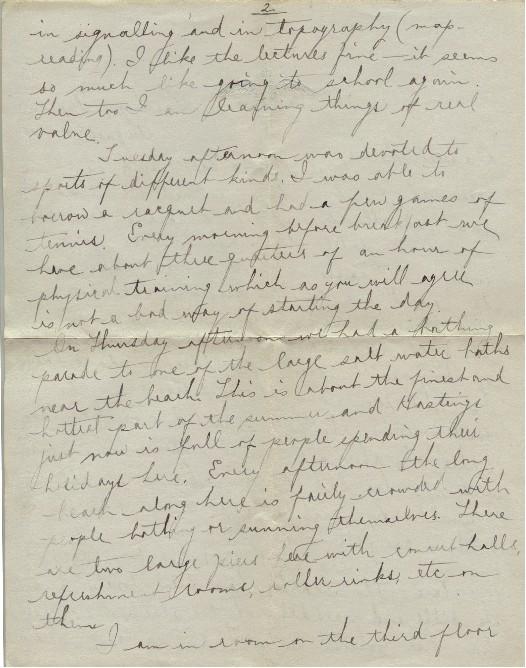 2.
in signalling and in topography (map-
reading). I like the lectures fine – it seems
so much like going to school again.
Then too I am learning things of real
value.
Tuesday afternoon was devoted to
sports of different kinds. I was able to
borrow a racquet and had a few games of
tennis. Every morning before breakfast we
have about three quarters of an hour of
physical training which as you will agree
is not a bad way of starting the day.
On Thursday afternoon we had a bathing
parade to one of the large salt water baths
near the beach. This is about the finest and
hottest part of the summer and Hastings
just now is full of people spending their
holidays here. Every afternoon the long
beach along here is fairly crowded with
people bathing or sunning themselves. There
are two large piers here with concert halls,
refreshment rooms, roller rinks, etc on
them.
I am in room on the third floor